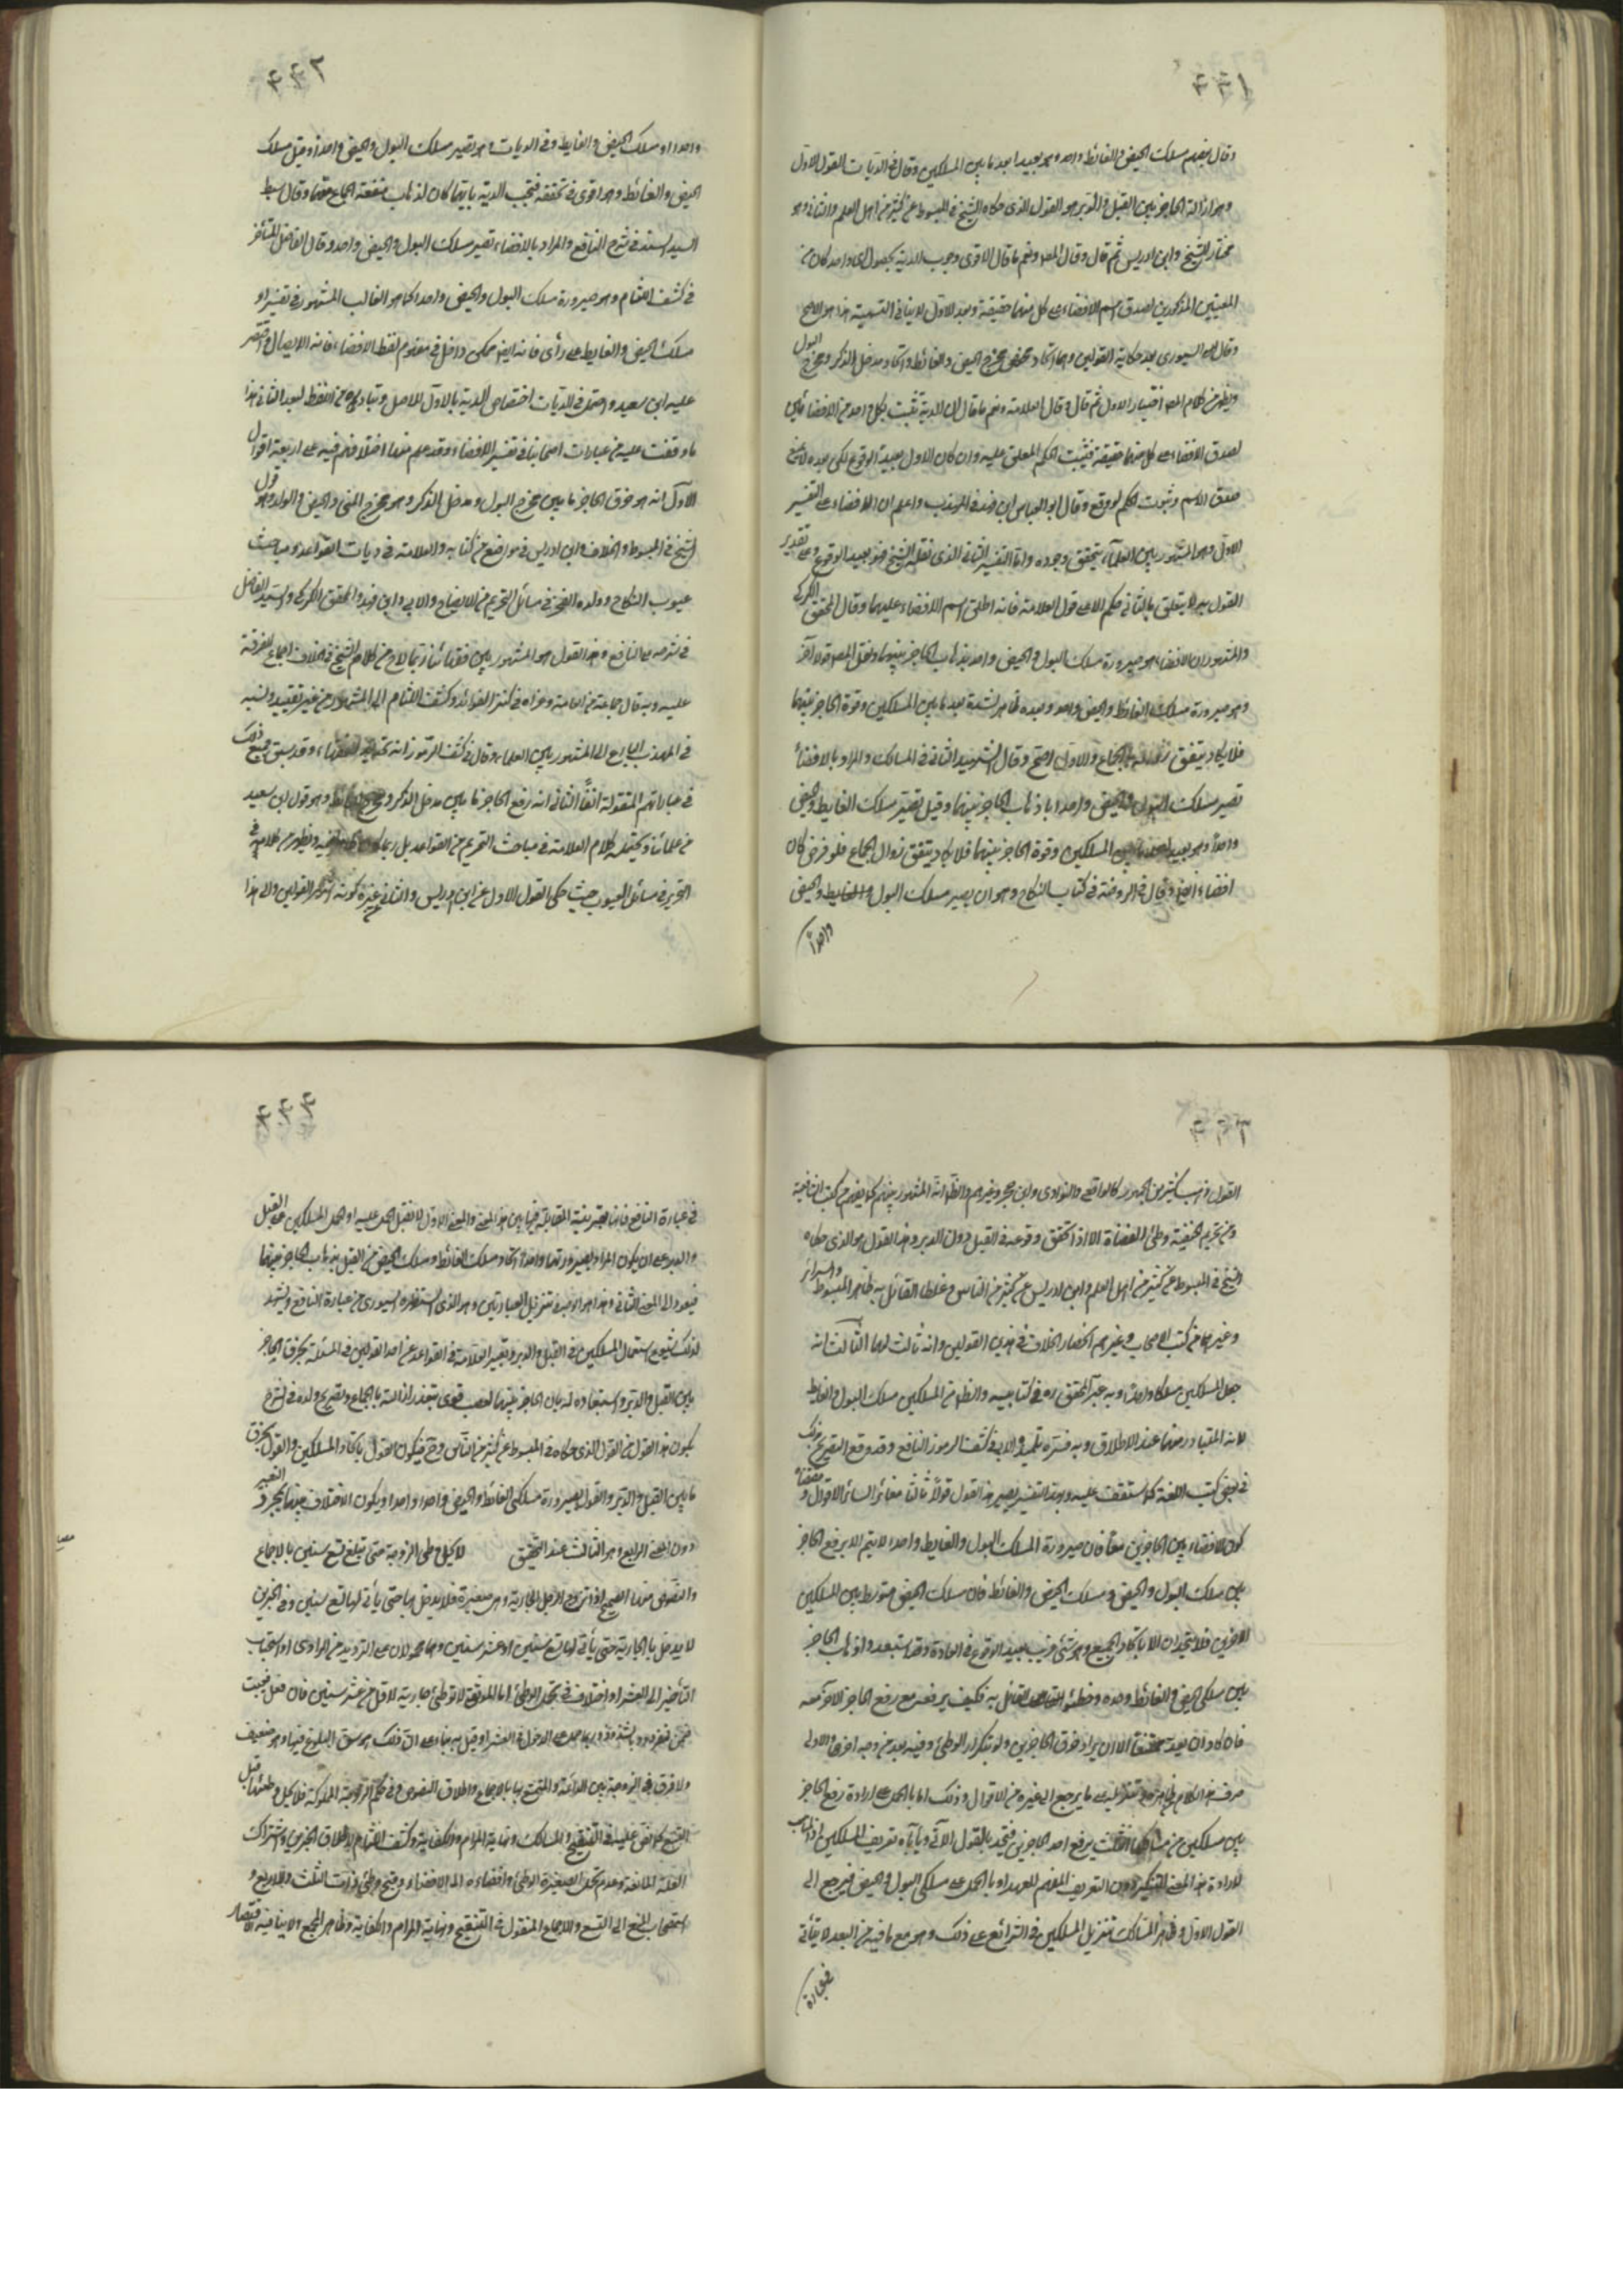 وقال بعضهم مسلك الحيض والغائط واحد وهو بعيد لبعد ما بين المسلكين وقال في الديات القول الاول
وهو ازالة الحاجز بين القبل والدبر هو القول الذى حكاه الشيخ في المبسوط عن كثير من اهل العلم والثانى وهو
مختار الشيخ وابن ادريس ثم قال وقال المص ونعم ما قال الاقوى وجوب الدية بحصول اى واحد كان من
المعنيين المذكورين لصدق اسم الافضاء على كل منهما حقيقة وبعد الاول لا ينافى التسمية هذا هو الاصح
وقال السيورى بعد حكاية القولين وهما اتحاد مخرج الحيض والغائط واتحاد مدخل الذكر ومخرج البول
ويظهر من كلام المص اختيار الاول ثم قال وقال العلامة ونعم ما قال ان الدية تثبت بكل واحد من الافضائين
لصدق الافضاء على كل منهما حقيقة فيثبت الحكم المعلق عليه وان كان الاول بعيد الوقوع لكن بعده لا يمنع
صدق الاسم وثبوت الحكم لو وقع وقال ابو العباس ابن فهد في المهذب واعلم ان الافضاء على التفسير
الاول وهو المشهور بين العلماء يتحقق وجوده واما التفسير الثانى الذى نقله الشيخ فهو بعيد الوقوع وعلى تقدير
القول به لا يتعلق بالثانى حكم الا على قول العلامة فانه اطلق اسم الافضاء عليهما وقال المحقق الكركى
والمشهور ان الافضاء هو صيرورة مسلك البول والحيض واحد بذهاب الحاجز بينهما ونقل المص قولا آخر
وهو صيرورة مسلك الغائط والحيض واحد وبعده ظاهر لشدة بعد ما بين المسلكين وقوة الحاجز بينهما
فلا يكاد يتفق زواله بالجماع والاول اصح وقال الشهيد الثانى في المسالك والمراد بالافضاء
تصير مسلك البول والحيض واحدا باذهاب الحاجز بينهما وقيل تصير مسلك الغايط والحيض
واحدا وهو بعيد لبعد ما بين المسلكين وقوة الحاجز بينهما فلا يكاد يتفق زوال الجماع فلو فرض كان
افضاء ايضا وقال في الروضة في كتاب النكاح وهو ان يصير مسلك البول والغايط والحيض
واحدا
واحدا او مسلك الحيض والغايط وفى الديات وهو تصيير مسلك البول والحيض واحدا وقيل مسلك
الحيض والغائط وهو اقوى في تحققه فتجب الدية بايهما كان لذهاب منفعة الجماع معهما وقال سبط
السيد السند في شرح النافع والمراد بالافضاء تصير مسلك البول والحيض واحد وقال الفاضل المتأخر
في كشف اللثام وهو صيرورة مسلك البول والحيض واحدا كما هو الغالب المشهور في تفسيره او
مسلك الحيض والغايط على رأى فانه ايضا ممكن داخل في مفهوم لفظ الافضاء فانه الايصال واقتصر
عليه ابن سعيد واحتمل في الديات اختصاص الدية بالاول للاصل وتبادره من اللفظ لبعد الثانى هذا
ما وقفت عليه من عبارات اصحابنا في تفسير الافضاء وقد علم منها اختلافهم فيه على اربعة اقوال
الاول انه هو خرق الحاجز ما بين مخرج البول ومدخل الذكر وهو مخرج المنى والحيض والولد وهو قول
الشيخ في المبسوط والخلاف وابن ادريس في مواضع من كتابه والعلامة في ديات القواعد ومباحث
عيوب النكاح وولده الفخر في مسائل التحريم من الايضاح والابى وابن فهد والمحقق الكركى والسيد الفاضل
في شرحه على النافع وهذا القول هو المشهور بين فقهائنا ربما لاح من كلام الشيخ في الخلاف اجماع الفرقة
عليه وبه قال جماعة من العامة وعزاه في كنز الفوائد وكشف اللثام الى المشهور من غير تقييد ونسبه
في المهذب البارع الى المشهور بين العلماء وقال في كشف الرموز انه تحديد الفقهاء وقد سبق جميع ذلك
في عباراتهم المنقولة آنفا الثانى انه رفع الحاجز ما بين مدخل الذكر ومخرج الغائط وهو قول ابن سعيد
من علمائنا ويحتمله كلام العلامة في مباحث التحريم من القواعد بل ربما كان ظاهرا فيه ويظهر من كلامه في
التحرير في مسائل العيوب حيث حكى القول الاول عن ابن ادريس والثانى عن غيره كونه اشهر القولين والى هذا
القول ذهب كثير من الجمهور كالرافعى والنواوى وابن حجر وغيرهم والظ انه المشهور بينهم كما يفهم من كتب الشافعية
ومن تحريم الحنفية وطئ المفضاة الا اذا تحقق وقوعه في القبل دون الدبر وهذا القول هو الذى حكاه
الشيخ في المبسوط عن كثير من اهل العلم وابن ادريس عن كثير من الناس وغلطا القائل به ظاهر المبسوط والسرائر
وغيرهما من كتب الاصحاب وغيرهم انحصار الخلاف في هذين القولين وانه ثالث لهما الثالث انه
جعل المسلكين مسلكا واحدا وبه عبر المحقق ره في كتابيه والظ من المسلكين مسلك البول والغايط
لانه المتبادر منهما عند الاطلاق وبه فسره تلميذه الابى في كشف الرموز النافع وقد وقع التصريح بذلك
في بعض كتب اللغة كما ستقف عليه وبهذا التفسير يصير هذا القول قولا ثالثا مغايرا لسائر الاقوال ومقتضاه
كون الافضاء بين الحاجزين معا فان صيرورة المسلك البول والغايط واحدا لا يتم الا برفع الحاجز
بين مسلك البول والحيض ومسلك الحيض والغائط فان مسلك الحيض متوسط بين المسلكين
الاخرين فلا يتحدان الا باتحاد الجميع وهو شئ غريب بعيد الوقوع في العادة وقد استبعدوا ذهاب الحاجز
بين مسلكى الحيض والغائط وحده وخطئوا القائل به فكيف برفعه مع رفع الحاجز الاخر معه
فانه كاد ان يعد ممتنعا الا ان يراد خرق الحاجزين ولو بتكرار الوطئ وفيه بعد من وجه اخر والاولى
صرف هذا الكلام عن ظاهره وتنزيله على ما يرجع الى غيره من الاقوال وذلك اما بالحمل على ارادة رفع الحاجز
بين مسلكين من مسالكها الثلث برفع احد الحاجزين فيتحد بالقول الآتى ويأباه تعريف المسلكين اذ المناسب
لارادة هذا المعنى التنكير دون التعريف المفهم للعهد او بالحمل على مسلكى البول والحيض فيرجع الى
القول الاول وظاهر المسالك تنزيل المسلكين في الشرائع على ذلك وهو مع ما فيه من البعد لا يتأتى
في عبارة
في عبارة النافع فانها قرينة المقابلة فيها بين هذا المعنى والمعنى الاول لا تقبل الحمل عليه او حمل المسلكين على القبل
والدبر على ان يكون المراد بصيرورتهما واحدا اتحاد مسلك الغائط ومسلك الحيض من القبل بذهاب الحاجز بينهما
فيعود الى المعنى الثانى وهذا هو الاوجه في تنزيل العبارتين وهو الذى استظهره السيورى من عبارة النافع ويشهد
لذلك شيوع استعمال المسلكين في القبل والدبر وتعبير العلامة في القواعد عن احد القولين في المسئلة بخرق الحاجز
بين القبل والدبر واستبعاده له بان الحاجز بينهما عصب قوى يتعذر ازالته بالجماع وتصريح ولده في شرح
بكون هذا القول هو القول الذى حكاه في المبسوط عن كثير من الناس وح فيكون القول باتحاد المسلكين والقول بخرق
ما بين القبل والدبر والقول بصيرورة مسلكى الغائط والحيض واحدا واحدا ويكون الاختلاف بينها بمجرد التعبير
دون المعنى الرابع وهو الثالث عند التحقيق لا يحل وطى الزوجة حتى تبلغ تسع سنين بالاجماع
والنصوص منها الصحيح اذا تزوج الرجل الجارية وهى صغيرة فلا يدخل بها حتى يأتى لها تسع سنين وفى الخبرين
لا يدخل بالجارية حتى يأتى لها تسع سنين او عشر سنين وهما محمولان على الترديد من الراوى او استحباب
التأخير الى العشر او اختلاف في تحمل الوطئ اما الموثق لا توطئ جارية لاقل من عشر سنين فان فعل فعيبت
ضمن فمردود بشذوذه وربما حمل على الدخول في العشر او قيل به بناء على ان ذلك هو سن البلوغ فيها وهو ضعيف
ولا فرق في الزوجة بين الدائمة والمتمتع بها بالاجماع واطلاق النصوص وفى حكم الزوجة المملوكة فلا يحل وطئها قبل
التسع كما نص عليه في التنقيح والمسالك ونهاية المرام والكفاية وكشف اللثام لاطلاق الخبرين واشتراك
العلة المانعة وعدم تحمل الصغيرة الوطئ وافضاءه الى الافضاء وقبح وطئ ذات الثلث والاربع و
استصحاب المنع الى التسع والاجماع المنقول في التنقيح ونهاية المرام والكفاية وظاهر المجمع ولا ينافيه الاقتصار